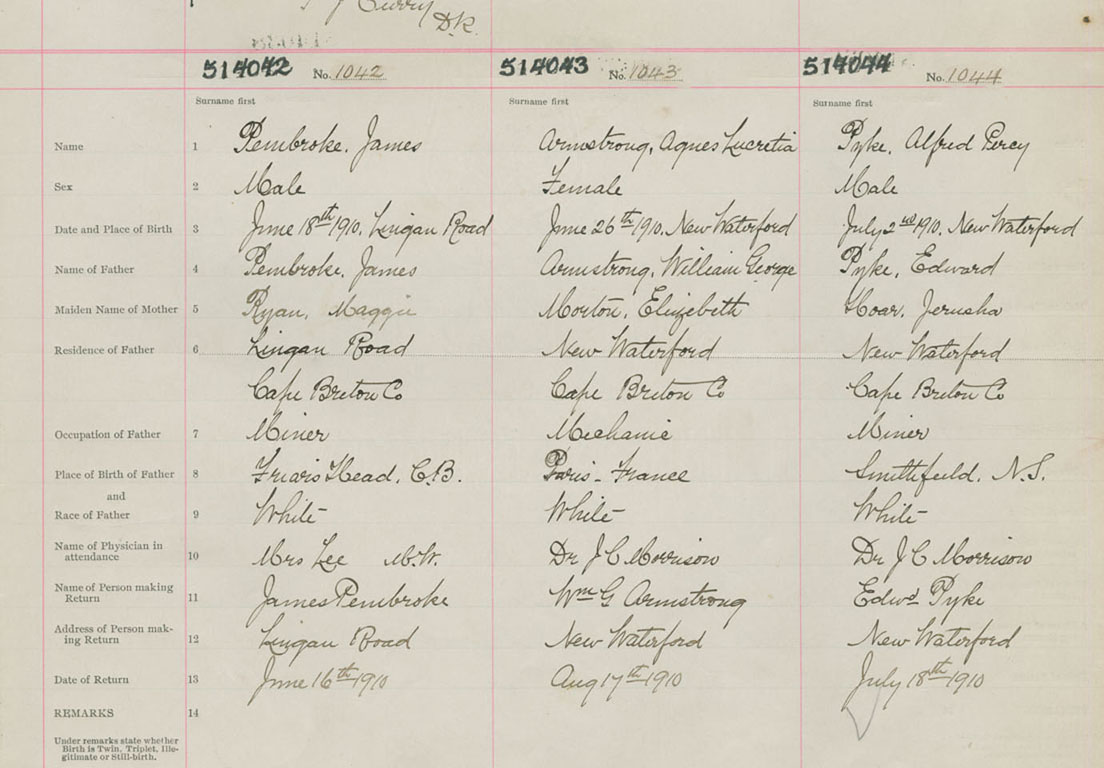 D.K.
514042 No. 1042 514043 No. 1043 514044 No. 1044
Surname first Surname first Surname first
Name 1 Pembroke, James Armstrong, Agnes Lucretia Pyke, Alfred Percy
Sex 2 Male Female Male
Date and Place of Birth 3 June 18th 1910, Lingan Road June 26th 1910, New Waterford July 2nd 1910, New Waterford
Name of Father 4 Pembroke, James Armstrong, William George Pyke, Edward
Maiden Name of Mother 5 Ryan, Maggie Morton, Elizebeth Hoar, Jerusha
Residence of Father 6 Lingan Road New Waterford New Waterford
Cape Breton Co Cape Breton Co Cape Breton Co
Occupation of Father 7 Miner Mechanic Miner
Place of Birth of Father 8 Friars Head, C.B. Paris - France Smithfield, N.S.
and
Race of Father 9 White White White
Name of Physician in
attendance 10 Mrs Lee M.W. Dr J C Morrison Dr J C Morrison
Name of Person making
Return 11 James Pembroke Wm G Armstrong Edwd Pyke
Address of Person mak-
ing Return 12 Lingan Road New Waterford New Waterford
Date of Return 13 June 16th 1910 Aug 17th 1910 July 18th 1910
REMARKS 14
Under remarks state whether
Birth is Twin, Triplet, Ille-
gitimate or Still-birth.